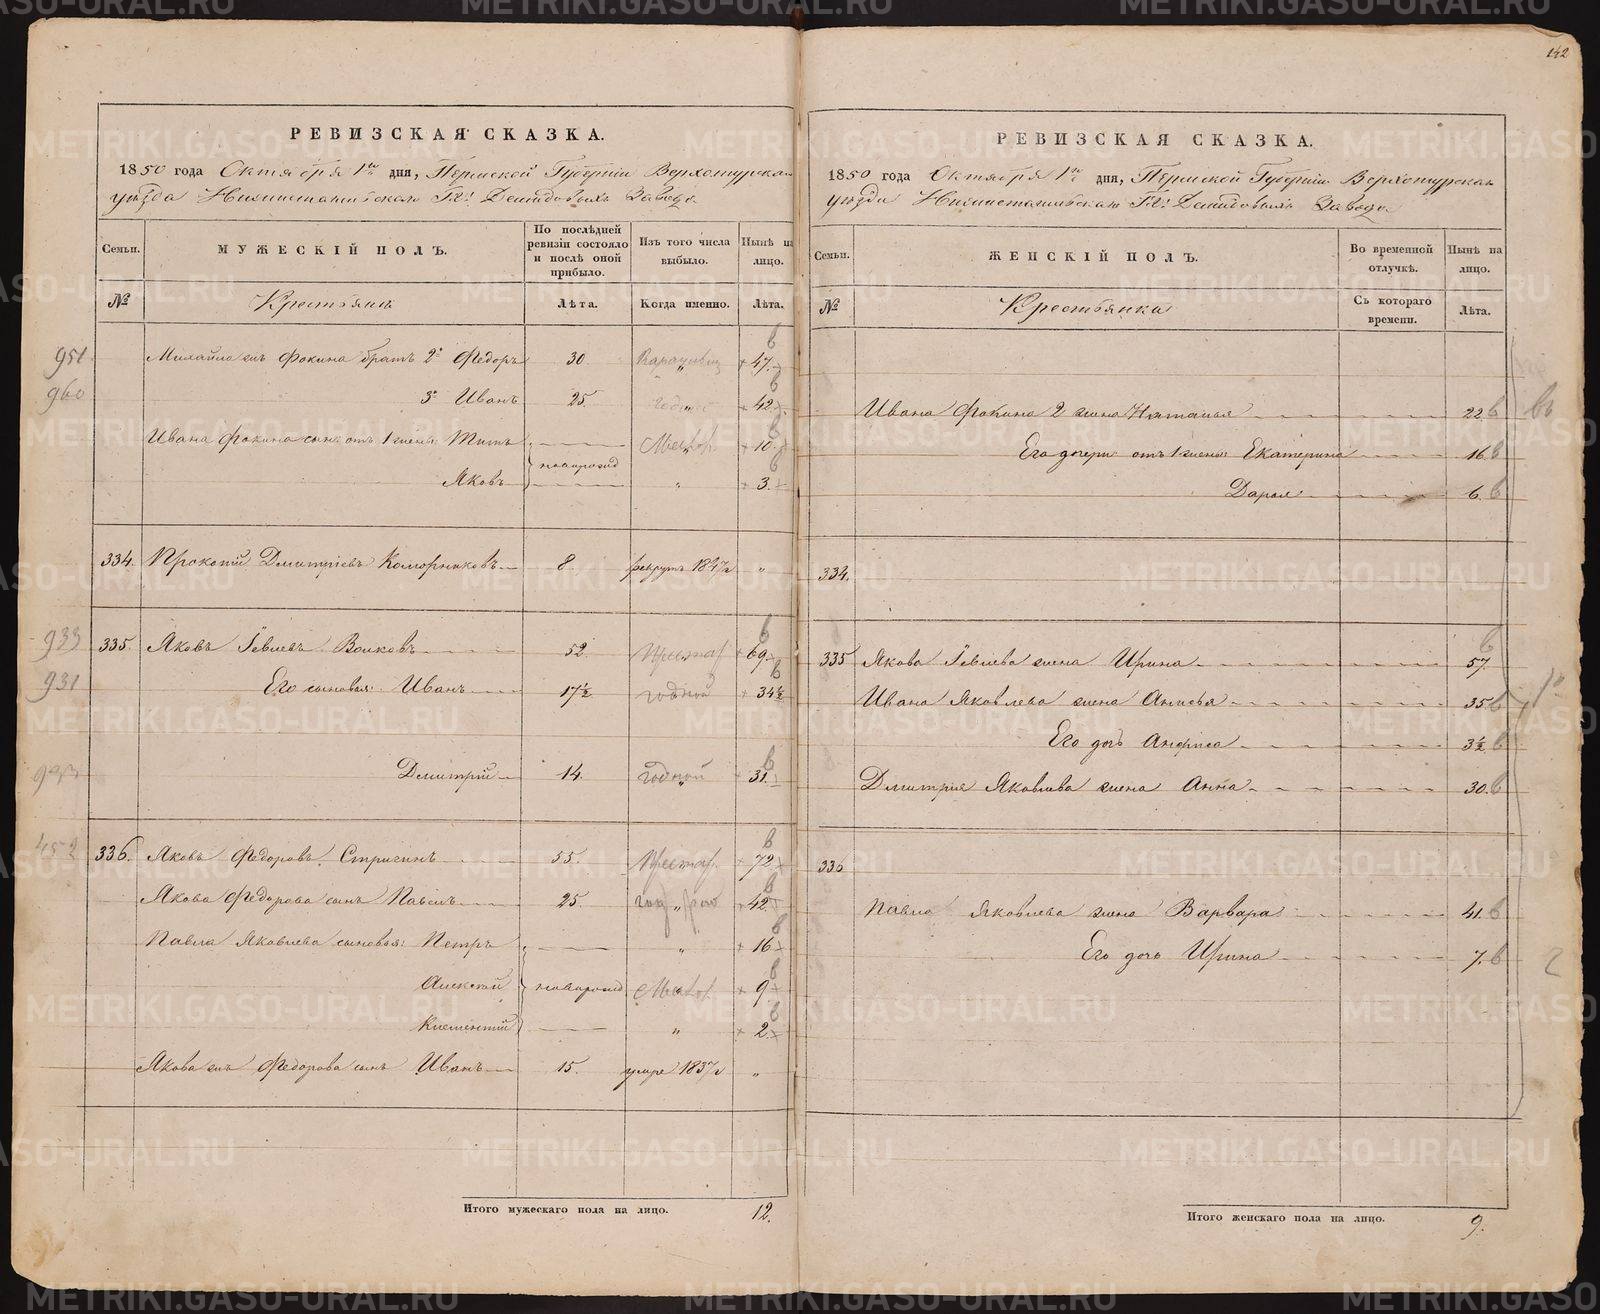 142
РЕВИЗСКАЯ СКАЗКА.
1850 года Октября 1го дня, Пермской Губернии Верхотурскаго
уѣзда Нижнетагильскаго Гг. Демидовыхъ Завода
Семьи. МУЖЕСКІЙ ПОЛЪ. По послѣдней ревизіи состояло и послѣ оной прибыло. Изъ того числа выбыло. Нынѣ на лицо.
№ Крестьянъ Лѣта. Когда именно. Лѣта.
951 Фокина братъ 2й Федоръ 30. " 47.
960 3й Иванъ 25. " 42.
Ивана Фокина сынъ отъ 1 жены: Титъ " 10.
новорожд
Яковъ " 3.
334. Прокопій Дмитріевъ Коморниковъ 8. рекрутъ 1847 г "
933 335. Яковъ Іевлевъ Волковъ 52. 69.
931 Его сыновья: Иванъ 17½ годной 34½
Дмитрій 14. годной 31.
336. Яковъ Федоровъ Стригинъ 55. 72
Якова Федорова сынъ Павелъ 25. " 42
Павла Яковлева сыновья: Петръ " 16
Алексѣй новорожд 9
Климентій " 2.
Якова Федорова сынъ Иванъ 15. умре 1837 г "
Итого мужескаго пола на лицо. 12.
РЕВИЗСКАЯ СКАЗКА.
1850 года Октября 1го дня, Пермской Губерніи Верхотурскаго
уѣзда Нижнетагильскаго Гг. Демидовыхъ Завода.
Семьи. ЖЕНСКІЙ ПОЛЪ. Во временной отлучкѣ. Нынѣ на лицо.
№ Крестьянки Съ котораго времени. Лѣта.
Ивана Фокина 2 жена Наталья 22
Его дочери отъ 1 жены: Екатерина 16
Дарья 6.
334.
335 Якова Іевлева жена Ирина 57.
Ивана Яковлева жена Анисья 35
Его дочь Анфиса 3½
Дмитрія Яковлева жена Анна 30.
336
Павла Яковлева жена Варвара 41.
Его дочь Ирина 7.
2
Итого женскаго пола на лицо. 9.
METRIKI.GASO-URAL.RU